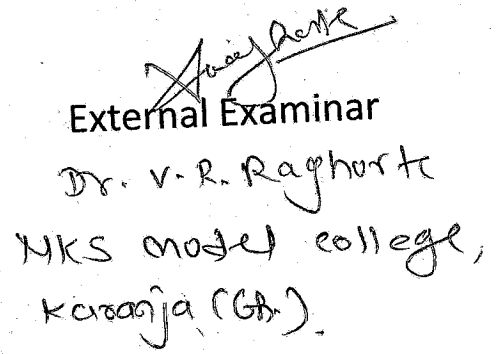 External Examinar
Dr. V. R. Raghorte
NKS model college,
Karanja (Gh.).